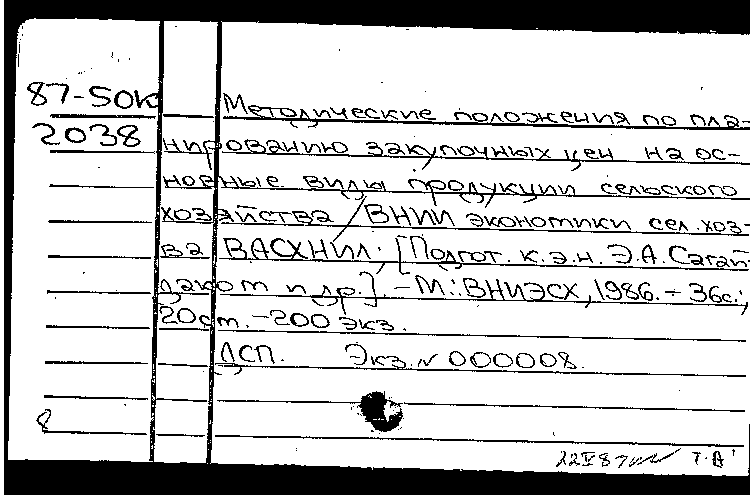 87-50К Методические положения по пла-
2038 нированию закупочных цен на ос-
новные виды продукции сельского
хозяйства / ВНИИ экономики сел. хоз-
ва ВАСХНИЛ; [Подгот. к.э.н. Э.А. Сагай-
даком и др.]. - М.: ВНИЭСХ, 1986. - 36с.;
20см. - 200 экз.
ДСП. Экз. № 000008.
8
22 V 87 Т.А